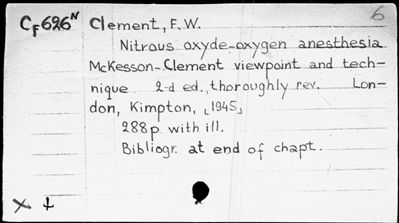 6
Cf 626ᴺ Clement, F.W.
Nitrous oxyde-oxygen anesthesia
McKesson-Clement viewpoint and tech-
nique 2-d ed., thoroughly rev. Lon-
don, Kimpton, [1945]
288p. with ill.
Bibliogr. at end of chapt.